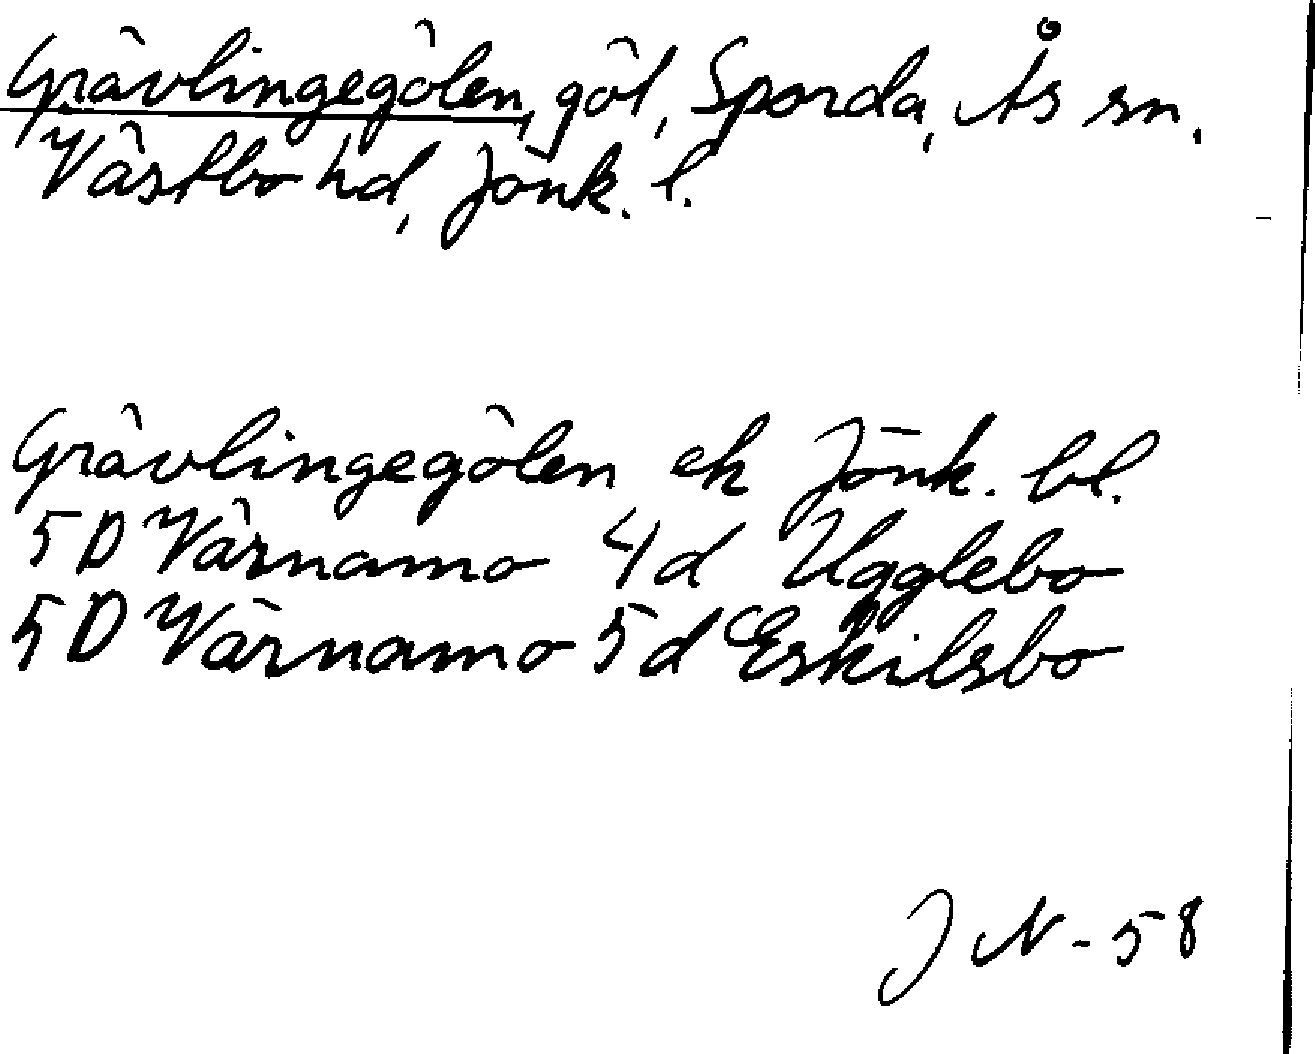 Grävlingegölen, göl, Sporda, Ås sn,
Västbo hd, Jönk. l.
Grävlingegölen ek Jönk. bl.
5D Värnamo 4d Ugglebo
5D Värnamo 5d Eskilsbo
J N - 58